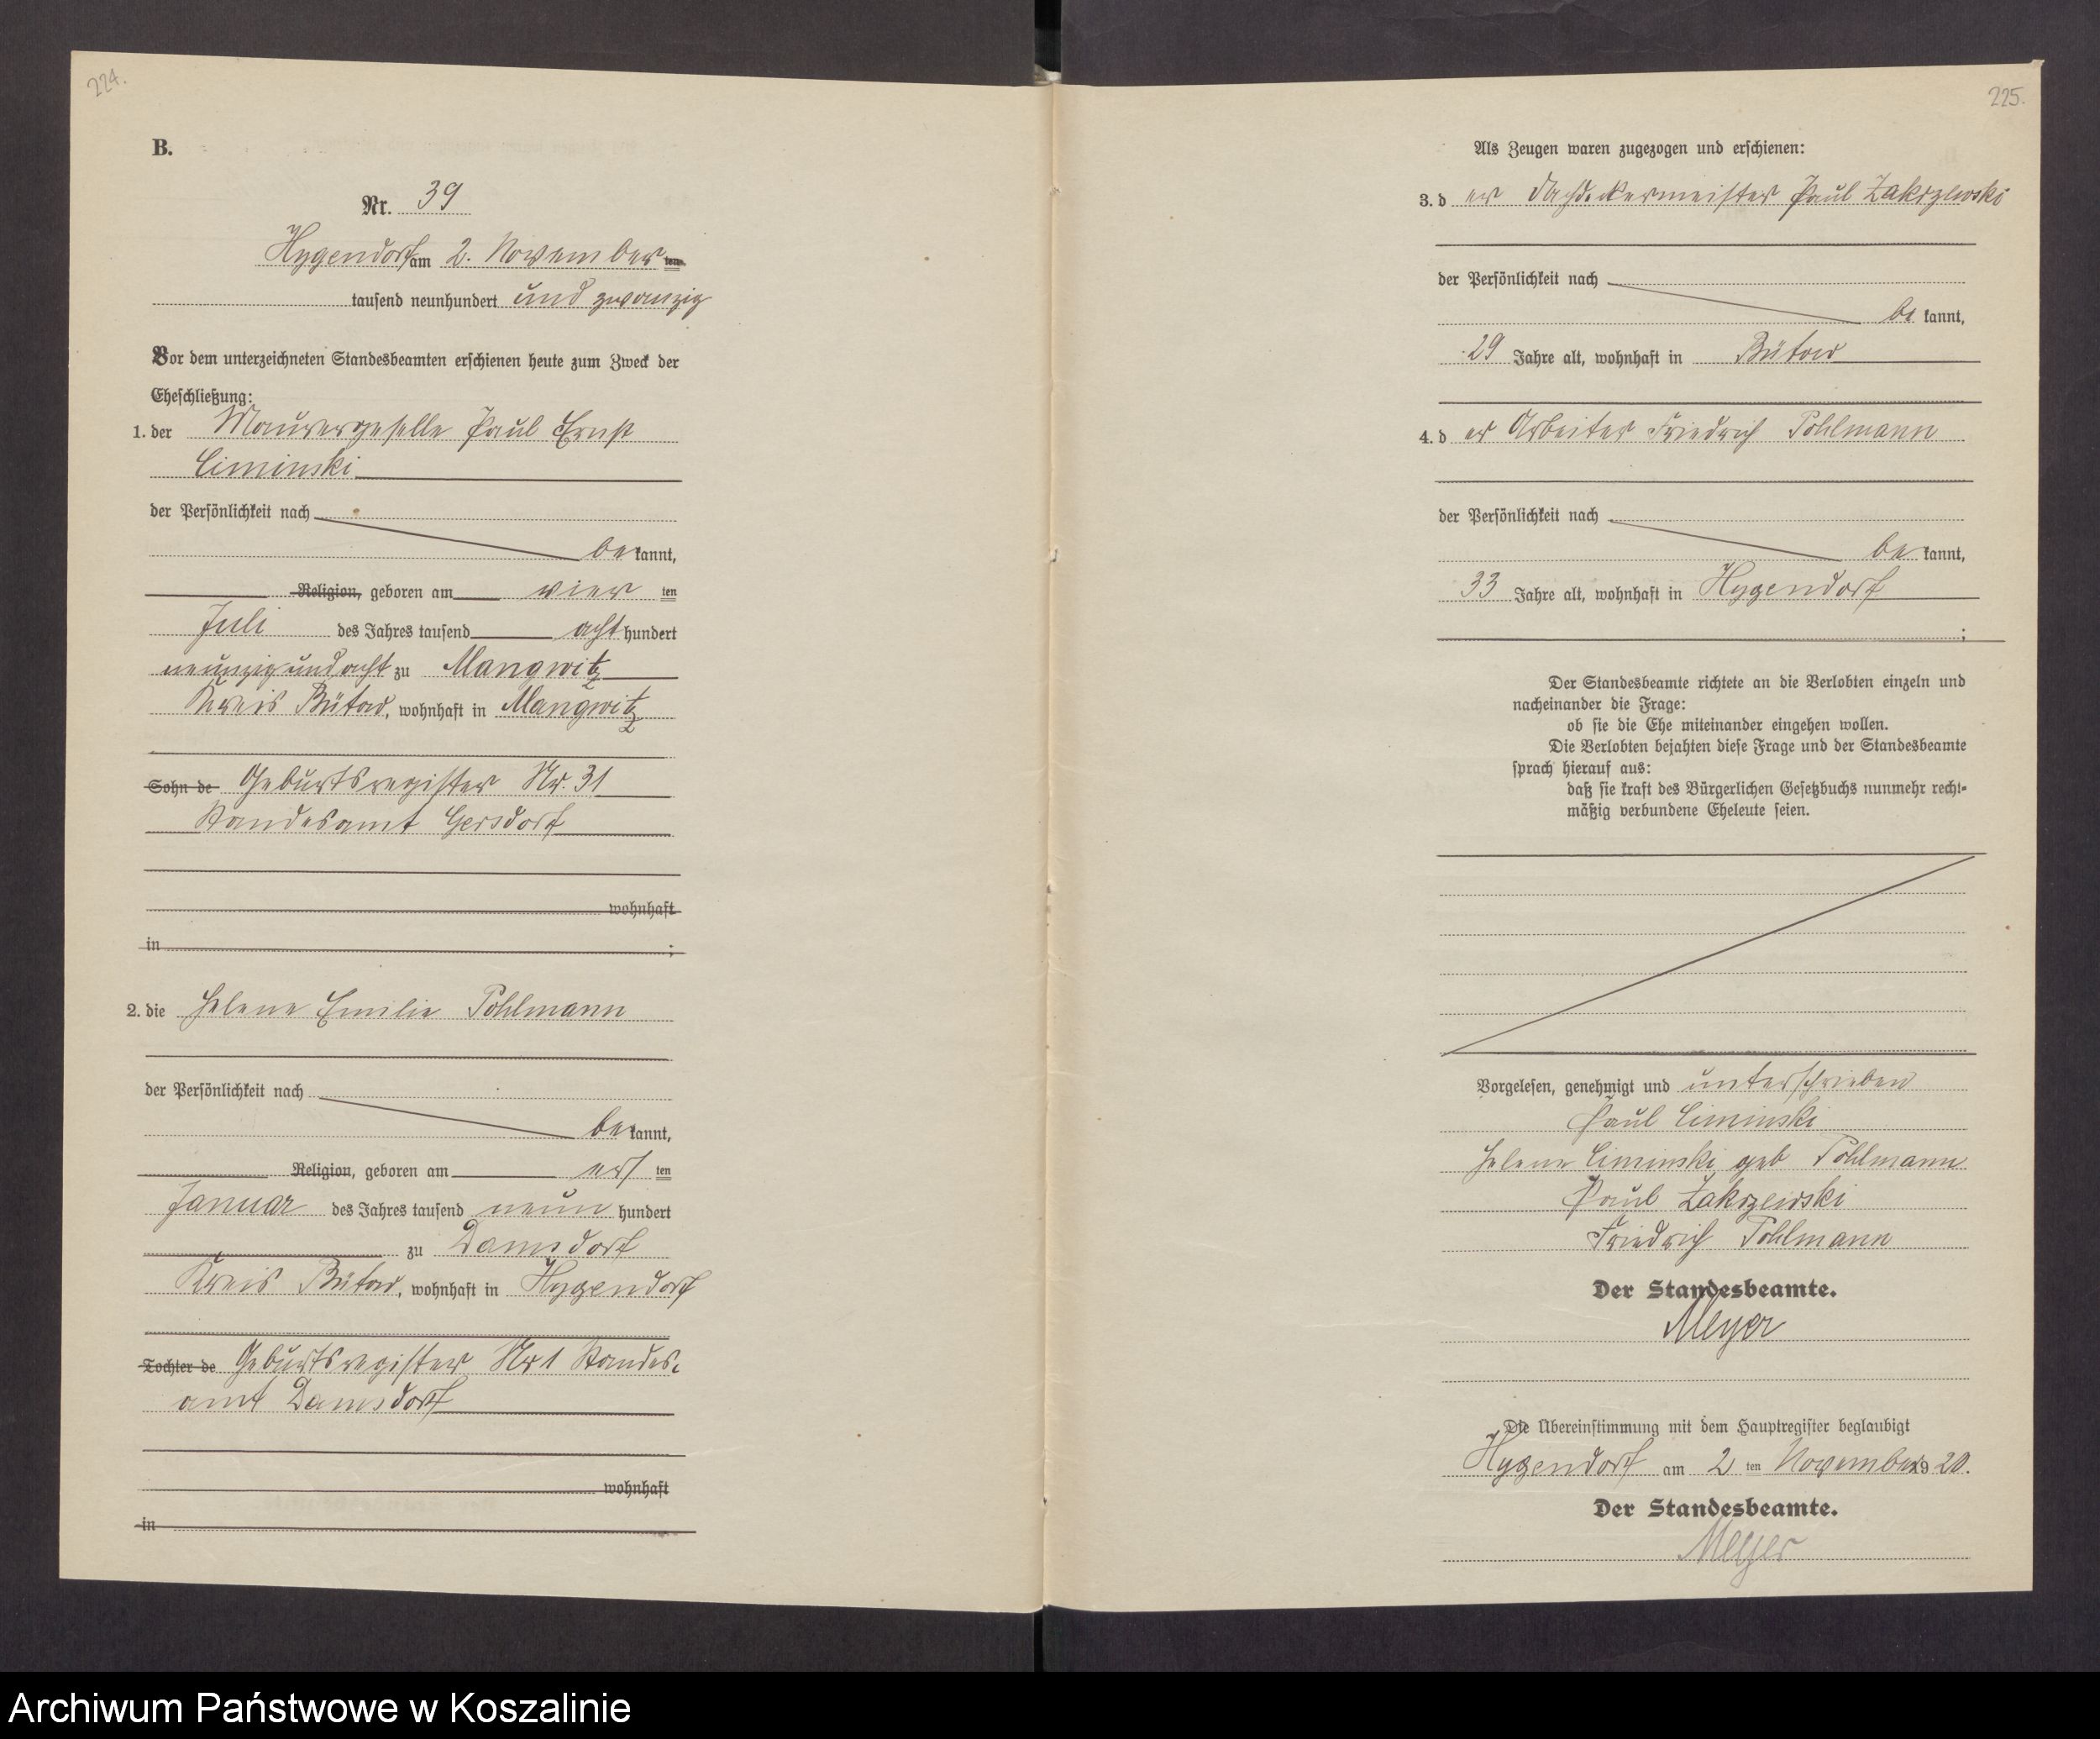 224.
B.
Nr. 39
Hygendorf am 2. November ten
tausend neunhundert und zwanzig
Vor dem unterzeichneten Standesbeamten erschienen heute zum Zweck der
Eheschließung:
1. der Maurergeselle Paul Ernst
Ciminski
der Persönlichkeit nach
be kannt,
Religion, geboren am vier ten
Juli des Jahres tausend acht hundert
neunzig und acht zu Mangwitz
Kreis Bütow, wohnhaft in Mangwitz
Sohn de Geburtsregister Nr. 31
Standesamt Gersdorf
wohnhaft
in ;
2. die Helene Emilie Pohlmann
der Persönlichkeit nach
be kannt,
Religion, geboren am ers ten
Januar des Jahres tausend neun hundert
zu Damsdorf
Kreis Bütow, wohnhaft in Hygendorf
Tochter de Geburtsregister Nr 1 Standes-
amt Damsdorf
wohnhaft
in
225.
Als Zeugen waren zugezogen und erschienen:
3. d er Dachdeckermeister Paul Zakrzewski
der Persönlichkeit nach
be kannt,
29 Jahre alt, wohnhaft in Bütow
4. d er Arbeiter Friedrich Pohlmann
der Persönlichkeit nach
be kannt,
33 Jahre alt, wohnhaft in Hygendorf
;
Der Standesbeamte richtete an die Verlobten einzeln und
nacheinander die Frage:
ob sie die Ehe miteinander eingehen wollen.
Die Verlobten bejahten diese Frage und der Standesbeamte
sprach hierauf aus:
daß sie kraft des Bürgerlichen Gesetzbuchs nunmehr recht-
mäßig verbundene Eheleute seien.
Vorgelesen, genehmigt und unterschrieben
Paul Ciminski
Helene Ciminski geb Pohlmann
Paul Zakrzewski
Friedrich Pohlmann
Der Standesbeamte.
Meyer
Die Übereinstimmung mit dem Hauptregister beglaubigt
Hygendorf am 2 ten November 19 20.
Der Standesbeamte.
Meyer
Archiwum Państwowe w Koszalinie